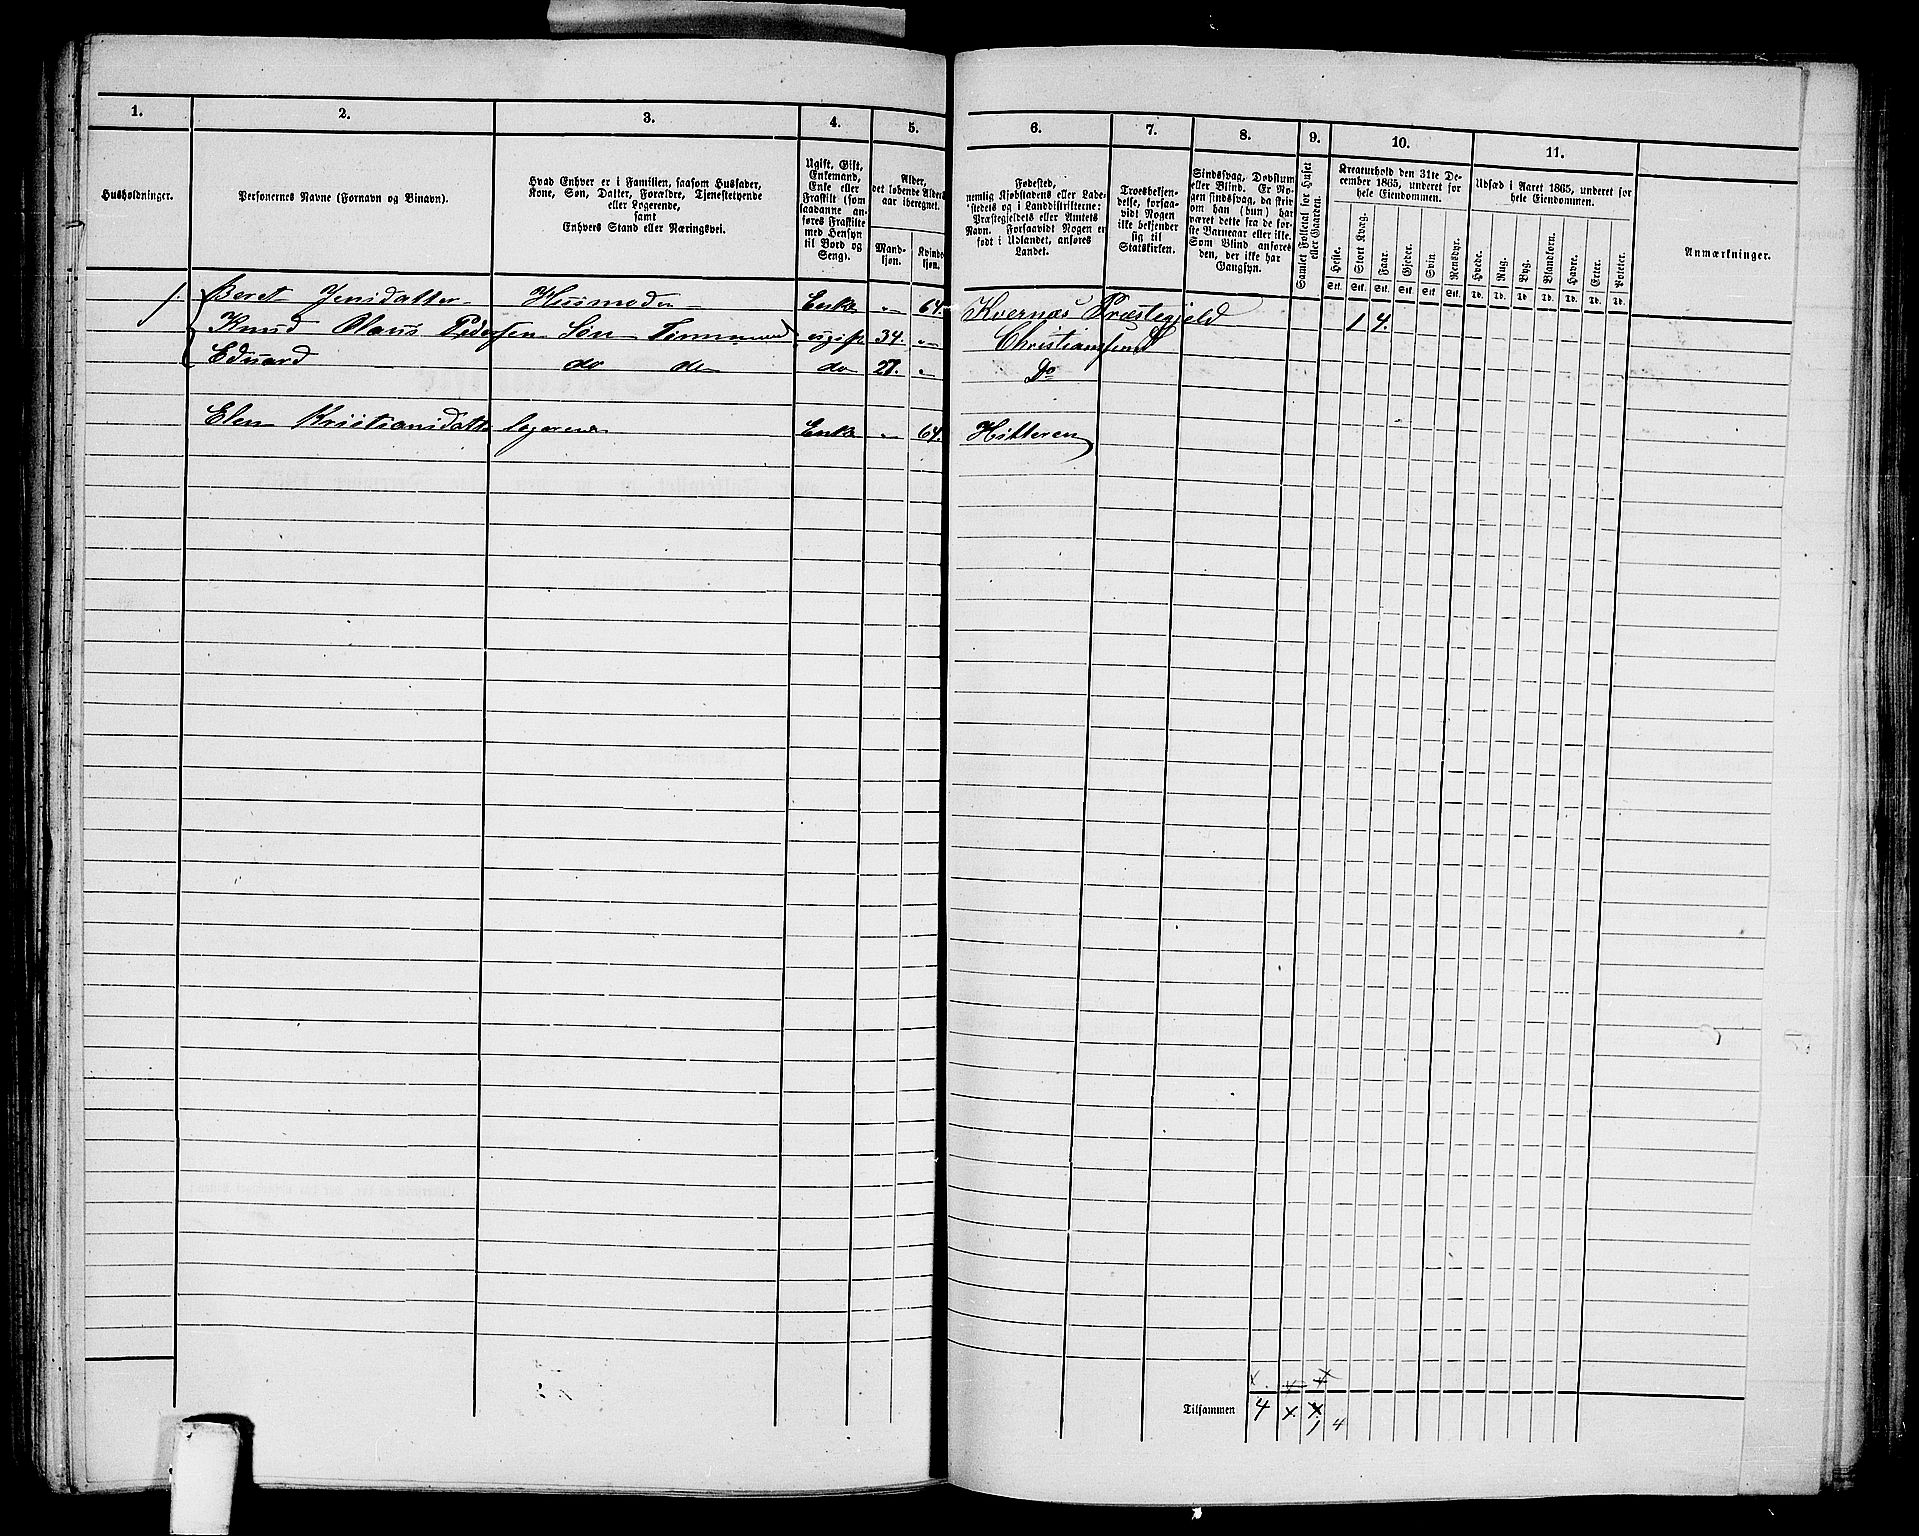 1. 2. 3. 4. 5. 6. 7. 8. 9. 10. 11.
Husholdninger.
Personernes Navne (Fornavn og Binavn).
Hvad Enhver er i Familien, saasom Husfader,
Kone, Søn, Datter, Forældre, Tjenestetyende
eller Logerende,
samt
Enhvers Stand eller Næringsvei.
Ugift, Gift,
Enkemand,
Enke eller
Fraskilt (som
saadanne an-
føres Fraskilte
med Hensyn
til Bord og
Seng).
Alder,
det løbende Alders-
aar iberegnet.
Mand-
kjøn.
Kvinde-
kjøn.
Fødested,
nemlig Kjøbstadens eller Lade-
stedets og i Landdistrikterne:
Præstegjeldets eller Amtets
Navn. Forsaavidt Nogen er
født i Udlandet, anføres
Landet.
Troesbekjen-
delse, forsaa-
vidt Nogen
ikke bekjender
sig til
Statskirken.
Sindssvag, Døvstum
eller Blind. Er No-
gen sindssvag, da skriv
om han (hun) har
været dette fra de før-
ste Barneaar eller ikke.
Som Blind anføres
den, der ikke har
Gangsyn.
Samlet Folketal for Huset
eller Gaarden.
Kreaturhold den 31te De-
cember 1865, underet for
hele Eiendommen.
Heste. Stort Kvæg. Faar. Gjeder. Svin. Rensdyr.
Stk. Stk. Stk. Stk. Stk. Stk.
Udsæd i Aaret 1865, underet for
hele Eiendommen.
Hvede. Rug. Byg. Blandkorn. Havre. Erter. Poteter.
Td. Td. Td. Td. Td. Td. Td.
Anmærkninger.
1. Beret Jensdatter Husmoder Enke " 64. Kvernæs Præstegjeld 1 4.
Knud Olaus Pedersen Søn Tømmermand ugift 34. " Christiansund
Eduard do do do 27. " Do
Elen Kristiansdatter logerende Enke " 64. Hitteren
Tilsammen 4 x. x.
1 4